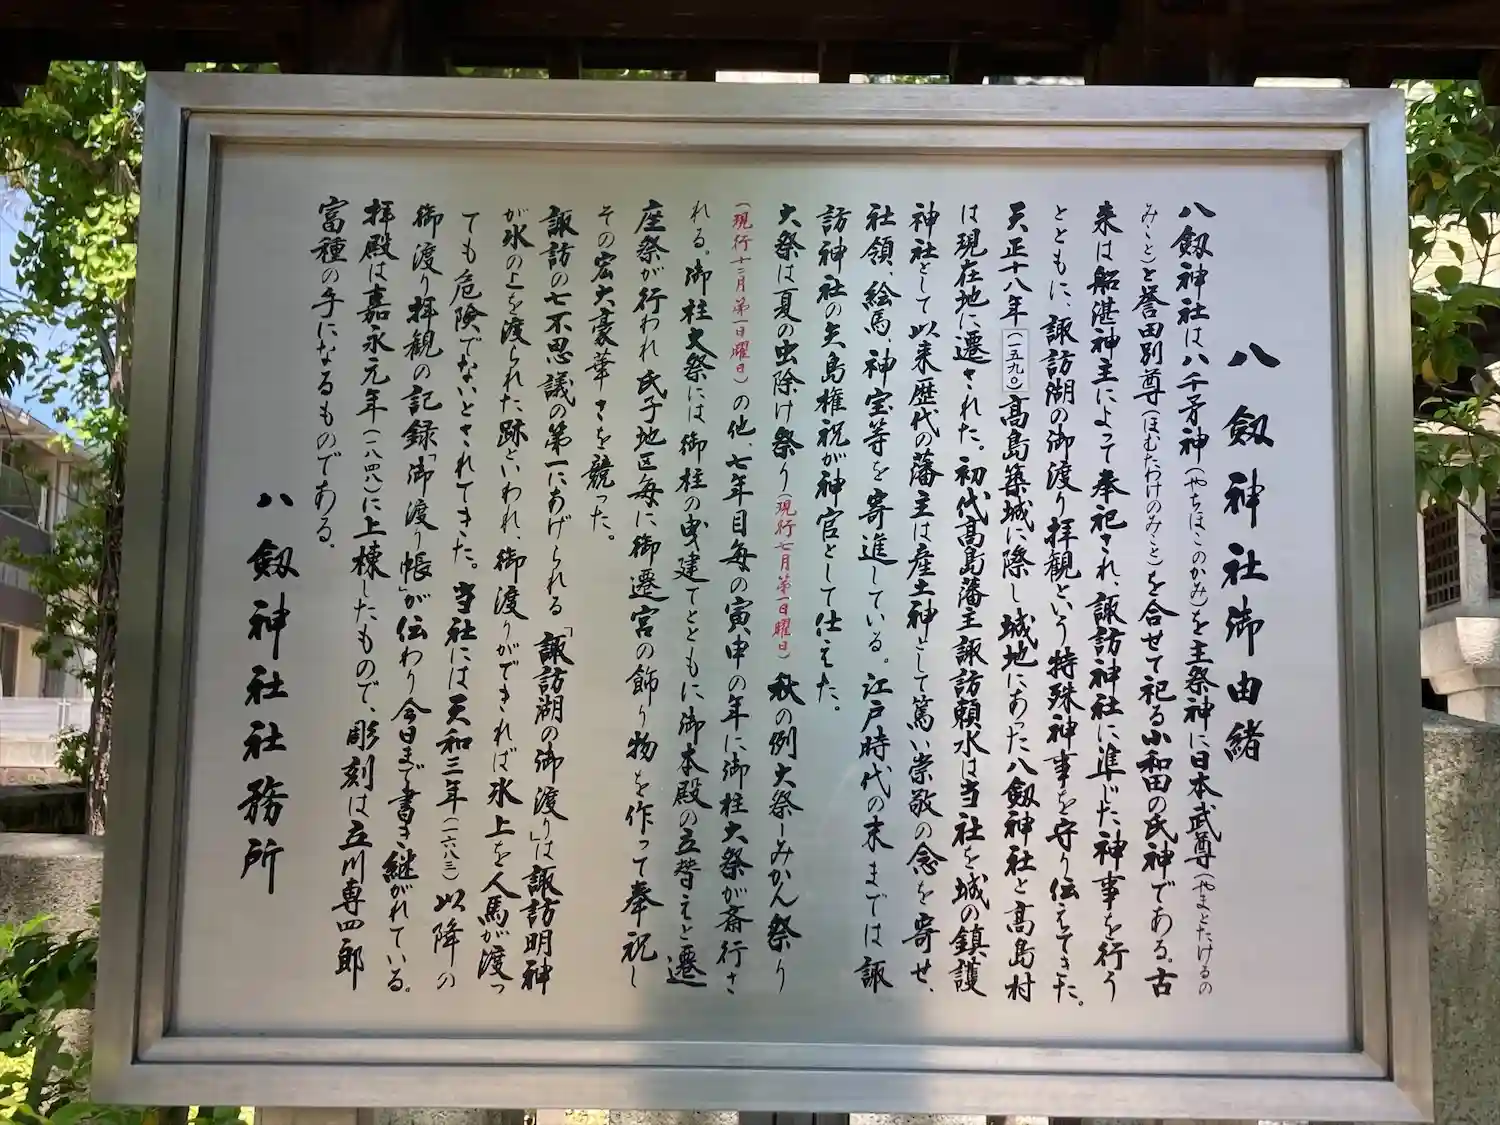 八劔神社御由緒
八劔神社は八千矛神(やちほこのかみ)を主祭神に日本武尊(やまとたけるの
みこと)と誉田別尊(ほむたわけのみこと)を合せて祀る小和田の氏神である。古
来は船湛神主によって奉祀され、諏訪神社に準じた神事を行う
とともに、諏訪湖の御渡り拝観という特殊神事を守り伝えてきた。
天正十八年(一五九〇)高島築城に際し城地にあった八劔神社と高島村
は現在地に遷された。初代高島藩主諏訪頼水は当社を城の鎮護
神社として以来歴代の藩主は産土神として篤い崇敬の念を寄せ、
社領、絵馬、神宝等を寄進している。江戸時代の末までは諏
訪神社の矢島権祝が神官として仕えた。
大祭は夏の虫除け祭り(現行七月第一日曜日)秋の例大祭―みかん祭り
(現行十二月第一日曜日)の他、七年目毎の寅申の年に御柱大祭が斎行さ
れる。御柱大祭には御柱の曳建てとともに御本殿の立替えと遷
座祭が行われ氏子地区毎に御遷宮の飾り物を作って奉祝し
その宏大豪華さを競った。
諏訪の七不思議の第一にあげられる「諏訪湖の御渡り」は諏訪明神
が氷の上を渡られた跡といわれ、御渡りができれば氷上を人馬が渡っ
ても危険でないとされてきた。当社には天和三年(一六八三)以降の
御渡り拝観の記録「御渡り帳」が伝わり今日まで書き継がれている。
拝殿は嘉永元年(一八四八)に上棟したもので、彫刻は立川専四郎
富種の手になるものである。
八劔神社社務所